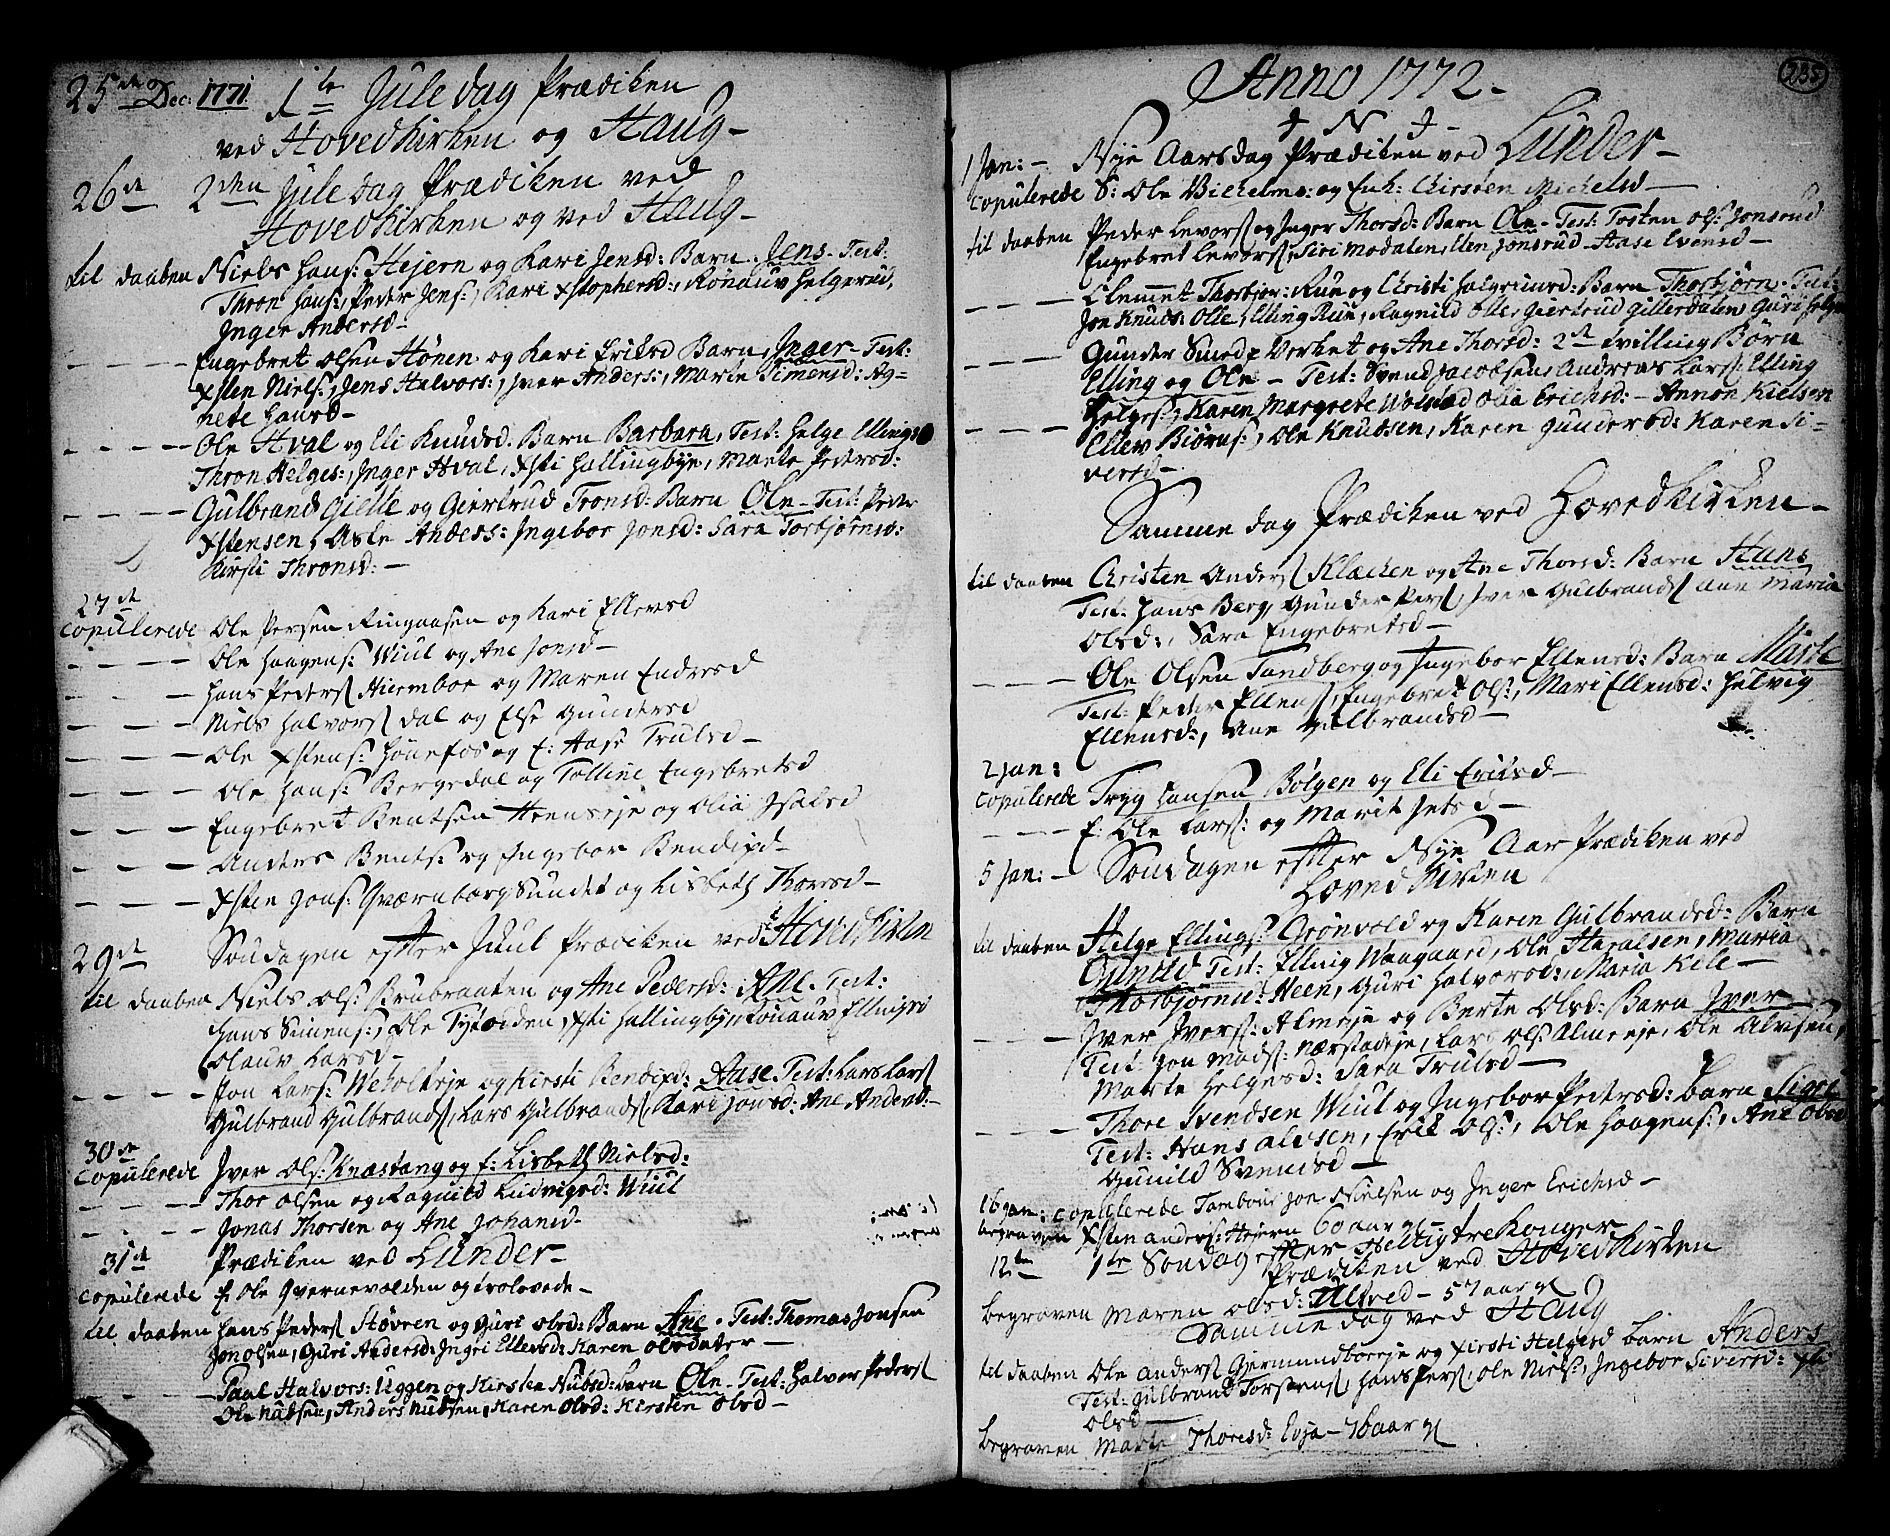 25de Dec: 1771 1te Juledag Prædiken
ved Hovedkirken og Haug-
26de 2den Juledag Prædiken ved
Hovedkirken og ved Haug-
til daaben Niels Hans: Hejern og Kari Jensd: Barn. Jens- Test:
Thron Hans:, Peder Jens:, Kari Xstophersd:, Rønauv Helgerud,
Inger Andersd-
Engebret Olsen Hønen og Kari Eriksd Barn, Inger- Test:
Xsten Niels:, Jens Halvors:, Iver Anders:, Marte Simensd: Ag-
nete Hansd-
Ole Hval og Eli Knudsd: Barn Barbara, Test: Helge Ellings
Thron Helges:, Inger Hval, Xsti Hallingbye, Marte Pedersd:
Gulbrand Gielle og Giertrud Tronsd: Barn Ole- Test: Peder
Xstensen, Asle Anders: Ingebor Jonsd: Sara Torbjørnsd:
Kirsti Thronsd:-
27de
Copulerede Ole Persen Ringaasen og Kari Ellevsd
Ole Haagens: Wiul og Ane Jonsd-
Hans Peders: Hiermboe og Maren Endersd
Niels Halvors: Dal og Else Gundersd
Ole Xstens: Hønefos og E: Aase Trulsd-
Ole Hans: Bergsdal og Tolline Engebretsd
Engebret Bentsen Heenseje og Olia Isaksd
Anders Bents: og Ingebor Bendixd-
Xsten Jons: Qværnborgsundet og Lisbeth Thorsd-
29de Søndagen efter Juul Prædiken ved Hovedkirken
til daaben Niels Ols: Brubraaten og Ane Pedersd: Ane- Test:
Hans Simens:, Ole Tystodden, Xsti Hallingbye, Rønauv Ellingsd
Olauv Larsd-
Jon Lars: Weholteje og Kirsti Bendixd: Aase- Test: Lars Lars:
Gulbrand Gulbrands:, Lars Gulbrands: Kari Jonsd: Ane Andersd:-
30de
Copulerede Iver Ols: Knæstang og E: Lisbeth Nielsd:
Thor Olsen og Ragnild Ludvigsd: Wiul
Jonas Thorsen og Ane Johansd-
31te Prædiken ved Lunder-
Copulerede E: Ole Qvernevolden og
til daaben Hans Peders: Høvren og Guri Olsd: Barn Ane- Test: Thomas Jonsen
Jon Olsen, Guri Andersd: Ingri Ellevsd: Karen Olsdatter-
Paal Halvors: Uggen og Kirsten Nubsd: barn Ole- Test: Halvor Peders:
Ole Nubsen, Anders Nubsen, Karen Olsd: Kirsten Olsd-
Anno 1772-
235
J N J-
1 Jan:- Nye Aarsdag Prædiken ved Lunder-
Copulerede S: Ole Vilhelms: og Enk: Kirsten Michelsd-
til daaben Peder Levors: og Inger Thorsd: Barn Ole- Test: Tosten Ols: Jonsrud
Engebret Levors: Siri Modalen, Elen Jonsrud- Aase Evensd-
Clemmet Thorbjør: Rue og Christi Halgrimsd: Barn Thorbjørn- Test:
Jon Knuds: Olie, Elling Rue, Ragnild Olie, Giertrud Gillerdalen, Guri Helge
Gunder Smed Verket og Ane Thorsd: 2de tvilling Børn
Elling og Ole- Test: Svend Jacobsen, Andreas Lars: Elling
Helges:, Karen Margrete Wolstad Olia Erichsd:- Annon Kielsen
Ellev Biørns:, Ole Knubsen, Karen Gundersd: Karen Si-
versd-
Samme dag Prædiken ved Hovedkirken-
til daaben Christen Anders: Klækken og Ane Thorsd: Barn Hans
Test: Hans Berg, Gunder Pers:, Iver Gulbrands: Ane Maria
Olsd:, Sara Engebretsd-
Ole Olsen Tandberg og Ingebor Ellensd: Barn Marte
Test: Peder Ellens:, Engebret Ols:, Mari Ellensd: Helvig
Ellensd:, Ane Gulbrandsd-
2 Jan:
Copulerede Tryg Hansen Bølgen og Eli Eriksd-
E: Ole Lars: og Marit
5 Jan:- Søndagen efter Nye Aar Prædiken ved
Hovedkirken
til daaben Helge Ellings: Grønvold og Karen Gulbrandsd: Barn
Test: Elling Waagaard, Ole Haralsen, Maria
Thorbjørnsd: Heen, Guri Halvorsd:, Maria Kile-
Iver Ivers: Almeje og Berte Olsd: Barn Iver-
Test: Jon Mads: Nærstadeje, Lars Ols: Almeeje, Ole Alvsen,
Marte Helgesd: Sara Trulsd-
Thore Svendsen Wiul og Ingebor Pedersd: barn Sigri
Test: Hans Alvsen, Erik Ols:, Ole Haagens:, Ane Olsd
Gunild Svensd-
16 Jan: Copulerede Tambour Jon Nielsen og Inger Erichsd-
begraven Xsten Anders: Hejern 60 aar gl-
12te 1te Søndag efter Hellig trekonger
Prædiken ved Hovedkirken
begraven Maren Olsd: Ultved- 57 aar gl
Samme dag ved Haug
til daaben Ole Anders: Gjermundboeeje og Kirsti Helgesd barn Anders
Test: Gulbrand Torstens:, Hans Pers:, Ole Niels:, Ingebor Siversd: Xsti
Olsd-
begraven Marte Thoresd: Evja- 76 aar gl